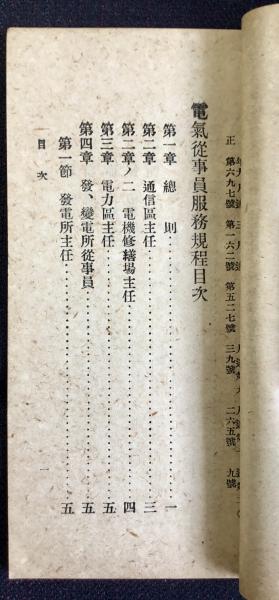 正
第六九七號
第一六二號
第五二七號
三九號
二六五號
九號
電氣從事員服務規程目次
第一章 總則……一
第二章 通信區主任……三
第二章ノ二 電機修繕場主任……四
第三章 電力區主任……五
第四章 發、變電所從事員……五
第一節 發電所主任……五
目次
一